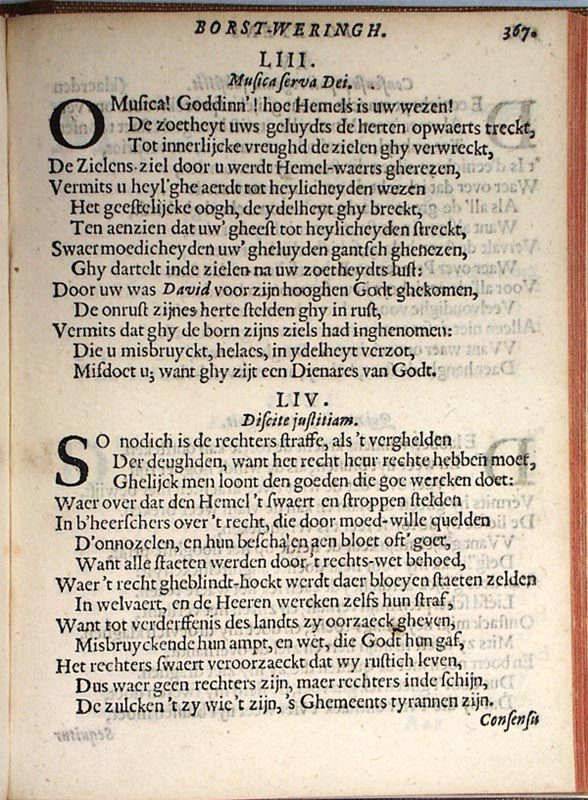 BORST-WERINGH. 367.
LIII.
Musica serva Dei.
O Musica! Goddinn'! hoe Hemels is uw wezen!
De zoetheyt uws geluydts de herten opwaerts treckt,
Tot innerlijcke vreughd de zielen ghy verwreckt,
De Zielens ziel door u werdt Hemel-waerts gherezen,
Vermits u heyl'ghe aerdt tot heylicheyden wezen
Het geestelijcke oogh, de ydelheyt ghy breckt,
Ten aenzien dat uw' gheest tot heylicheyden streckt,
Swaermoedicheyden uw' gheluyden gantsch ghenezen,
Ghy dartelt inde zielen na uw zoetheydts lust:
Door uw was David voor zijn hooghen Godt ghekomen,
De onrust zijnes herte stelden ghy in rust,
Vermits dat ghy de born zijns ziels had inghenomen:
Die u misbruyckt, helaes, in ydelheyt verzot,
Misdoet u; want ghy zijt een Dienares van Godt.
LIV.
Discite justitiam.
SO nodich is de rechters straffe, als 't verghelden
Der deughden, want het recht heur rechte hebben moet,
Ghelijck men loont den goeden die goe wercken doet:
Waer over dat den Hemel 't swaert en stroppen stelden
In b'heerschers over 't recht, die door moed-wille quelden
D'onnozelen, en hun beschalen aen bloet oft' goet,
Want alle staeten werden door 't rechts-wet behoed,
Waer 't recht gheblindt-hockt werdt daer bloeyen staeten zelden
In welvaert, en de Heeren wercken zelfs hun straf,
Want tot verderffenis des landts zy oorzaeck gheven,
Misbruyckende hun ampt, en wet, die Godt hun gaf,
Het rechters swaert veroorzaeckt dat wy rustich leven,
Dus waer geen rechters zijn, maer rechters inde schijn,
De zulcken 't zy wie 't zijn, 's Ghemeents tyrannen zijn.
Consensu